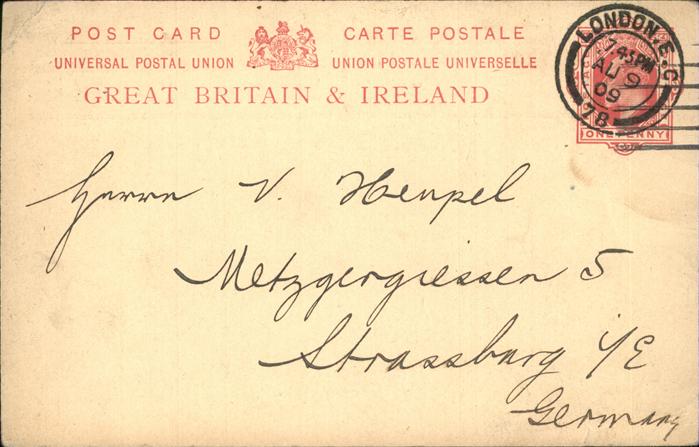 POST CARD CARTE POSTALE
UNIVERSAL POSTAL UNION UNION POSTALE UNIVERSELLE
GREAT BRITAIN & IRELAND
LONDON. E. C
45 PM
AU 9
09
78
ONE PENNY
Herrn V. Hempel
Metzgergiessen 5
Strassburg i/E
Germany